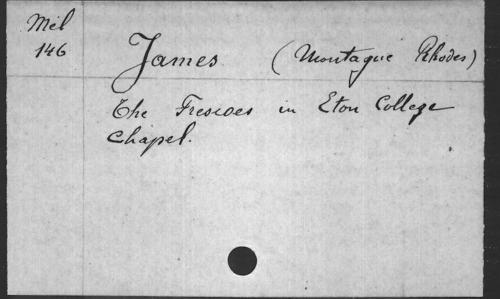 Mél
146
James (Montague Rhodes)
The Frescoes in Eton College
Chapel.